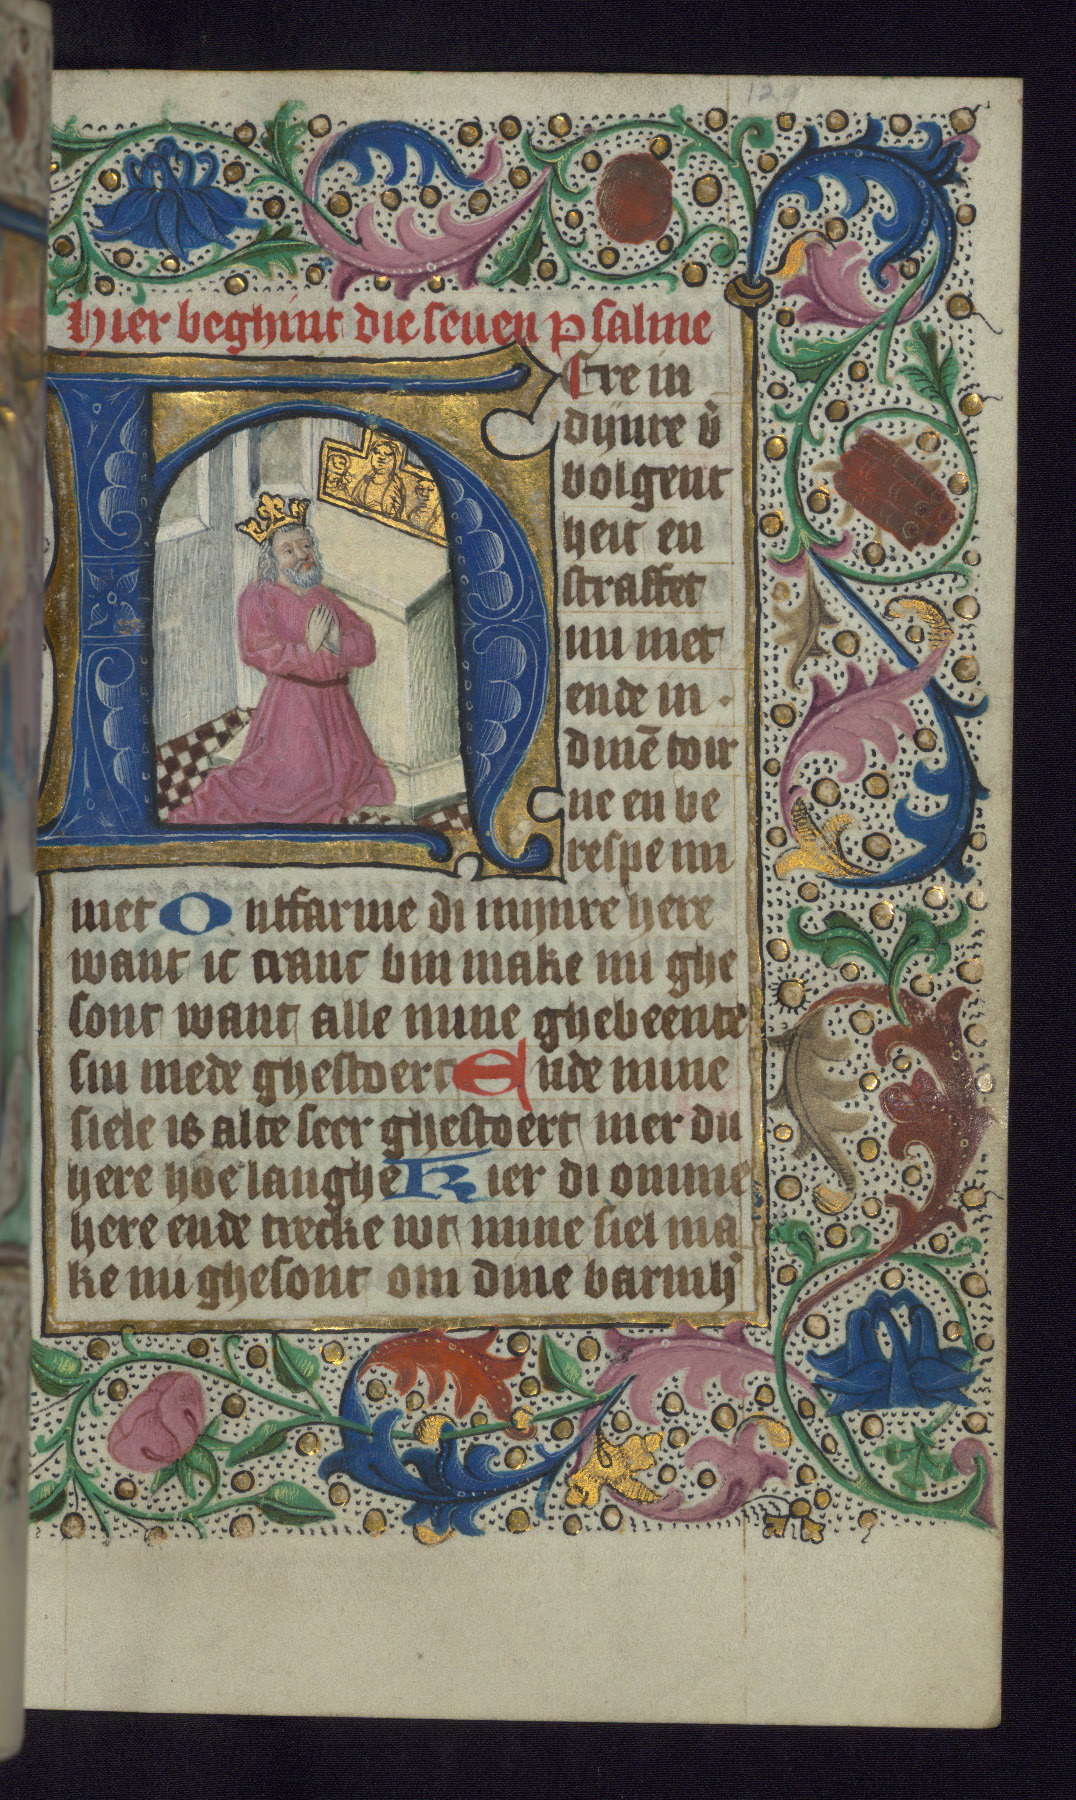 129
hier beghint die seuen psalme
H ere in
dijnre v̄
bolgent
heit en
straffet
mi niet
ende in
dinē toir
ne en be
respe mi
niet Ontfarme di mijnre here
want ic cranc bin make mi ghe
sont want alle mine ghebeente
sin mede ghestoert Ende mine
siele is alte seer ghestoert mer du
here hoe langhe Kier di omme
here ende trecke wt mine siel ma
ke mi ghesont om dine barmh᷒